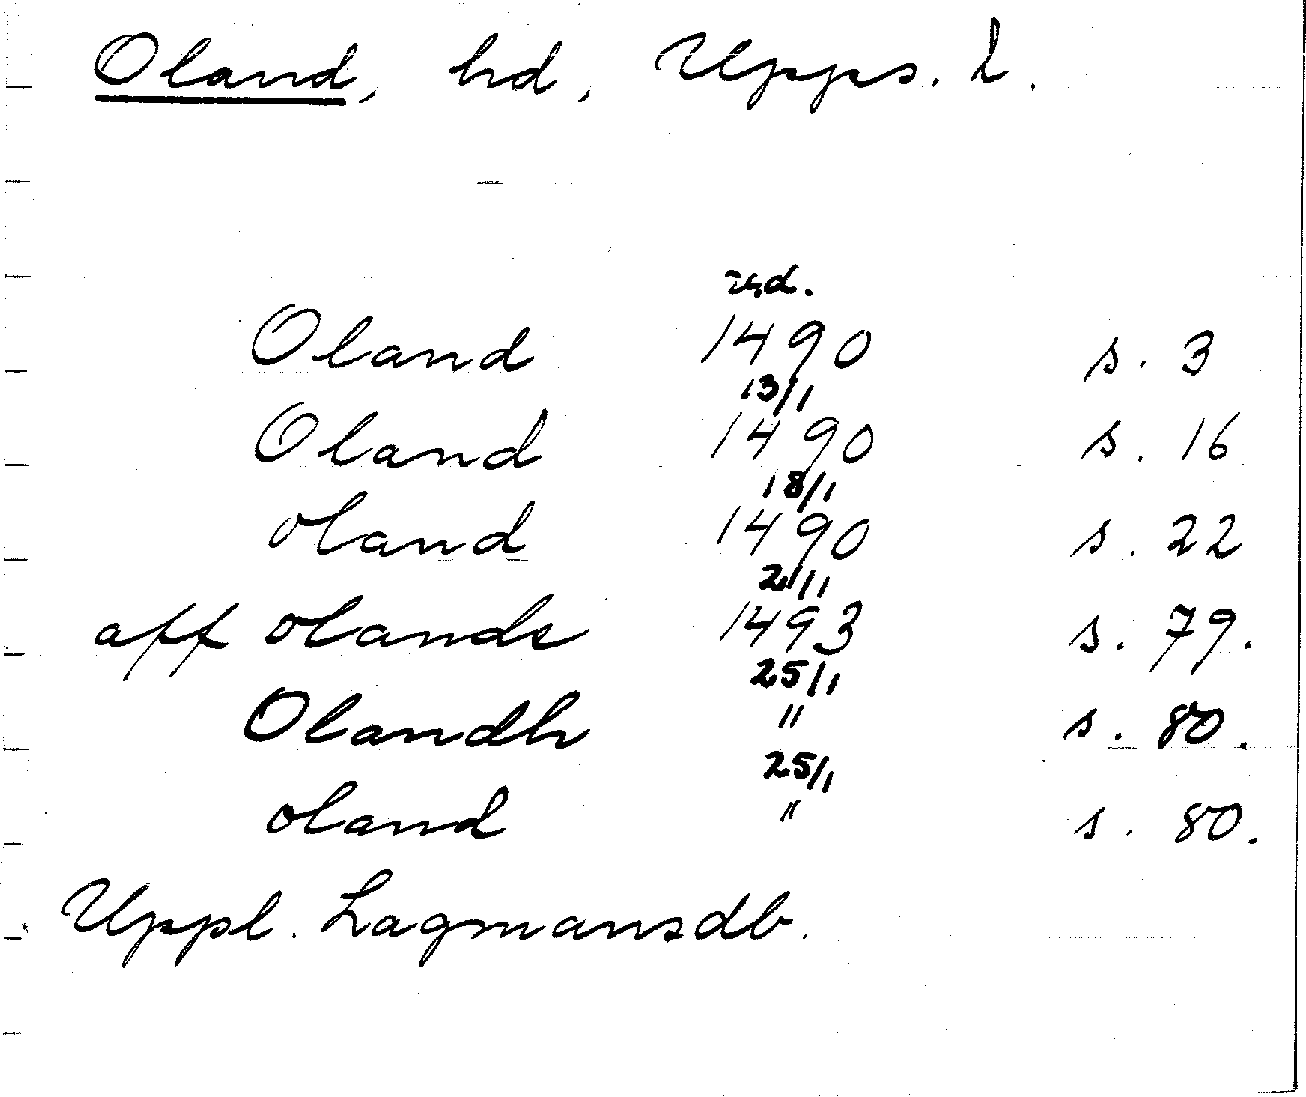 Oland, hd, Upps. l.
usd.
Oland 1490 s. 3
13/1
Oland 1490 s. 16
18/1
oland 1490 s. 22
21/1
aff olands 1493 s. 79.
25/1
Olandh " s. 80.
25/1
oland " s. 80.
Uppl. Lagmansdb.